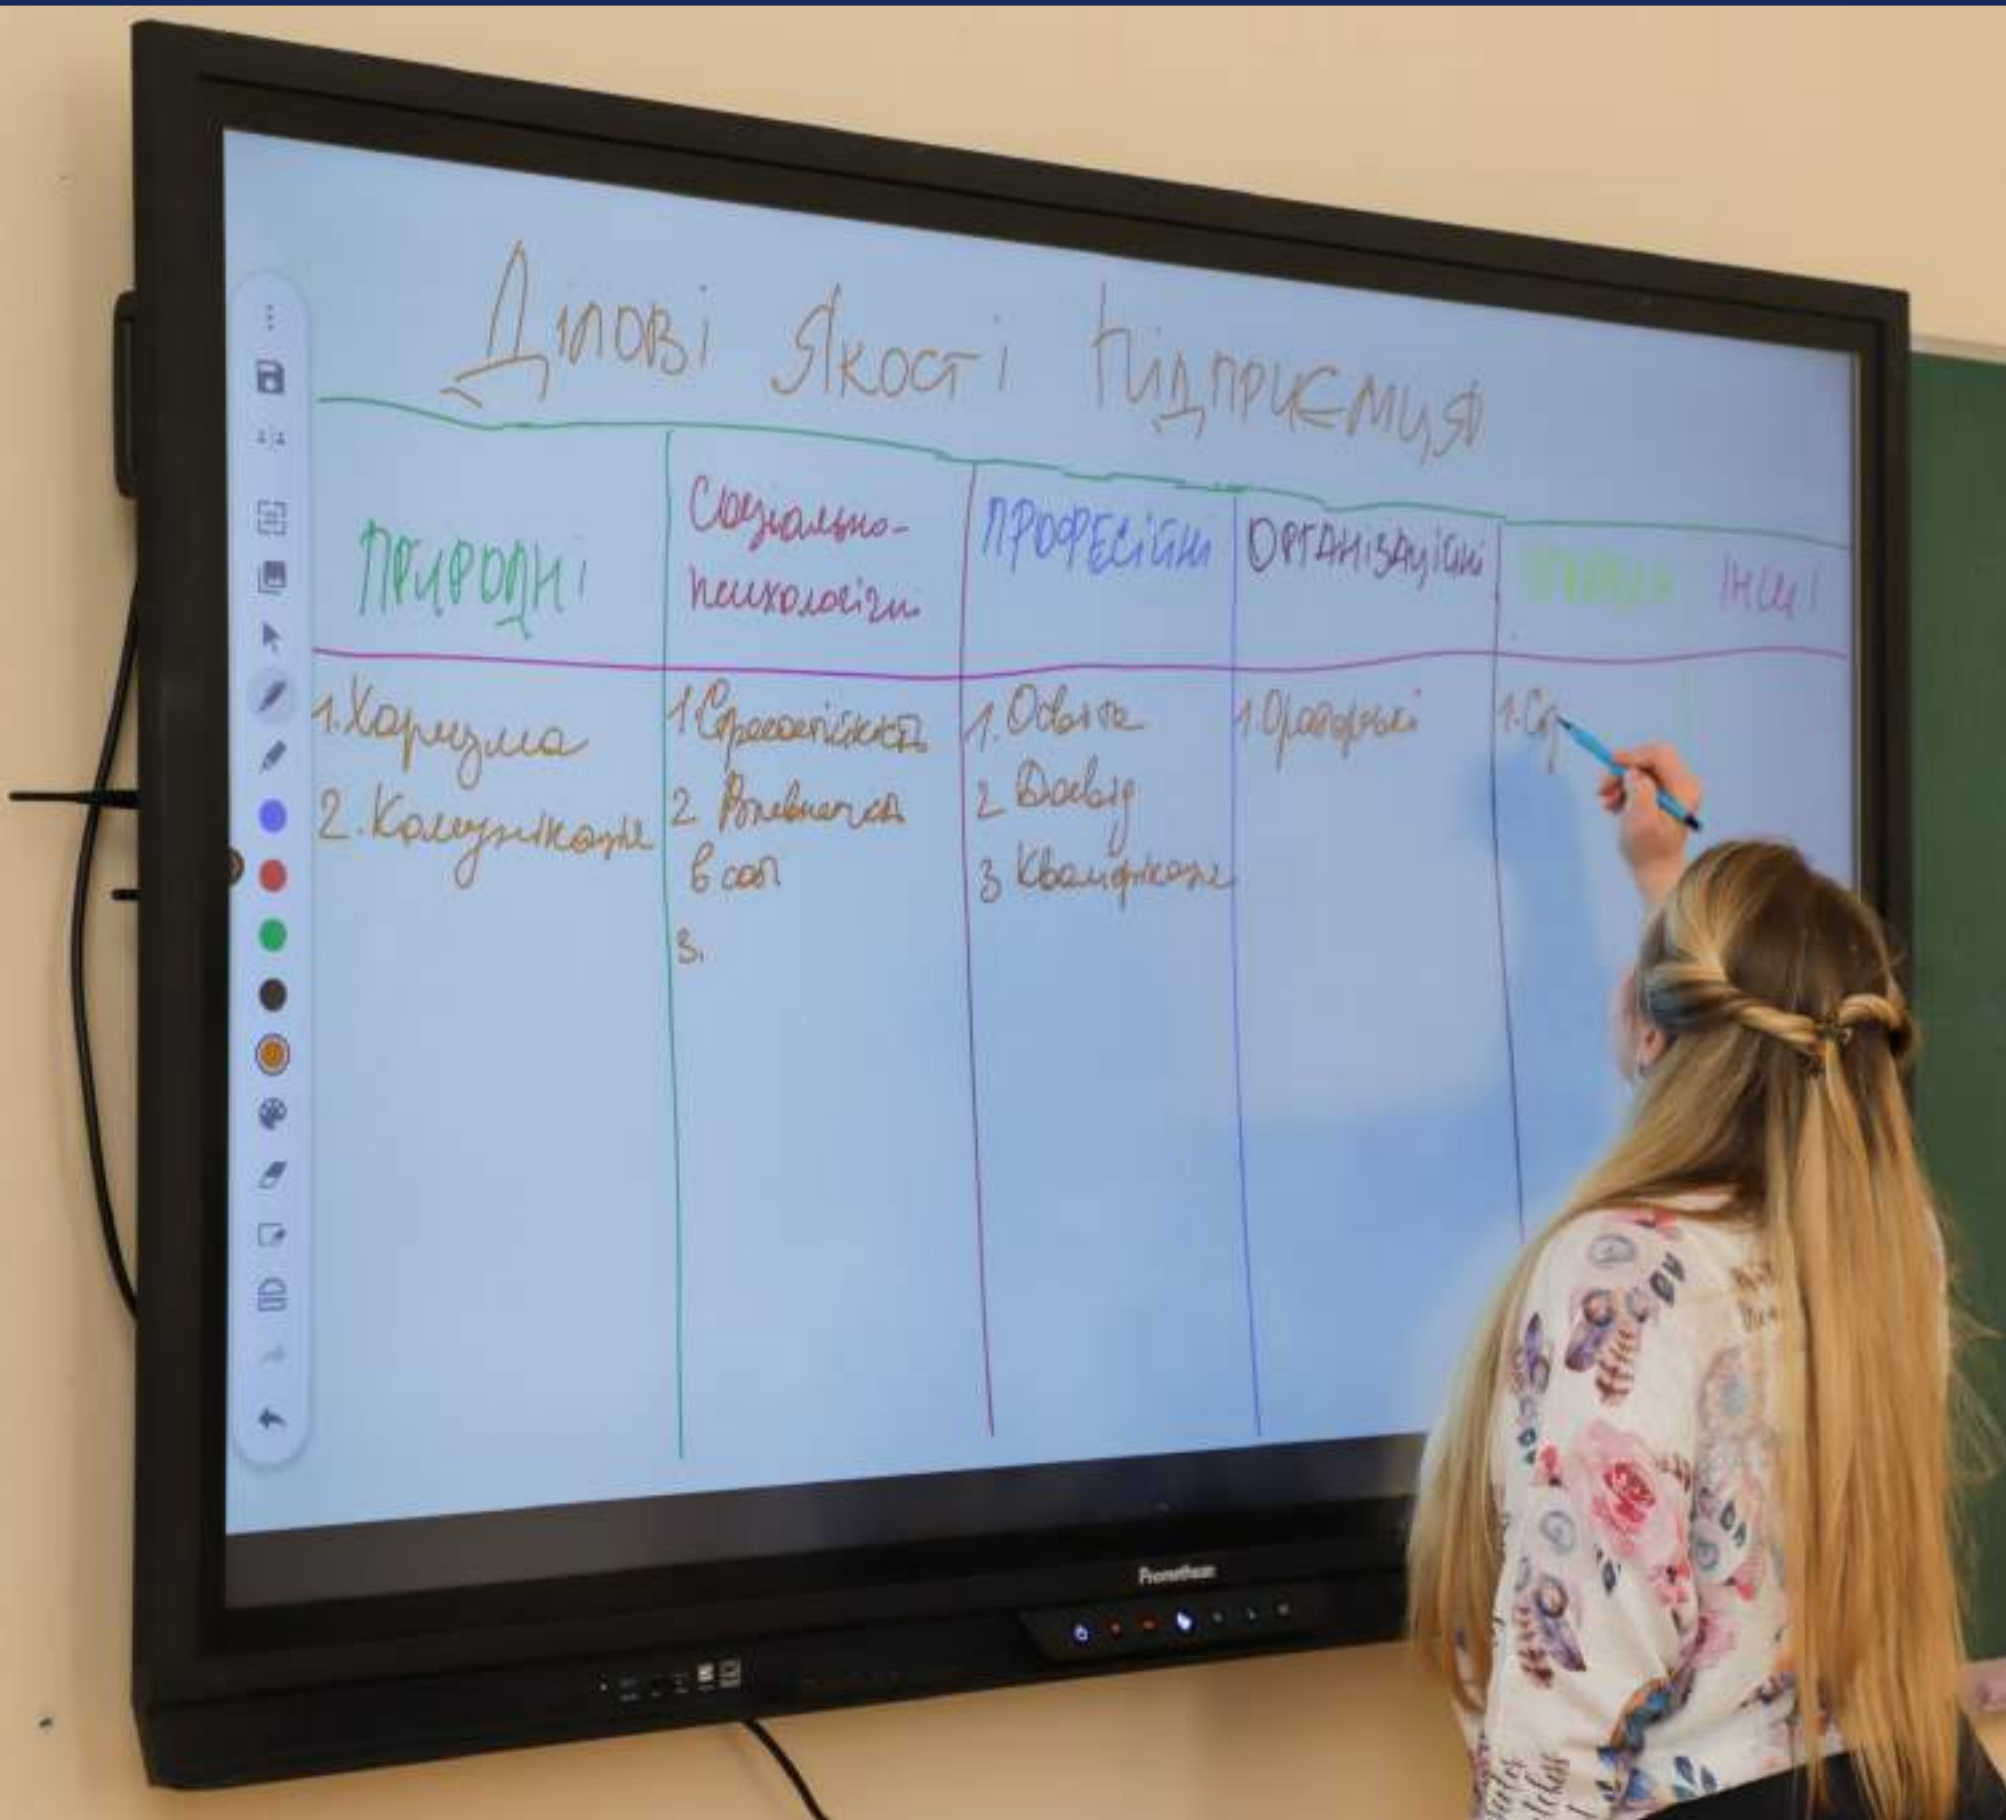 Ділові Якості Підприємця
Природні
Соціально-
психологічні
Професійні
Організаційні
Інші
1. Харизма
2. Комунікація
1 Стресостійкість
2 Впевненість
в собі
3.
1. Освіта
2 Досвід
3 Кваліфікація
1. Ораторські
1. Ст
Promethean